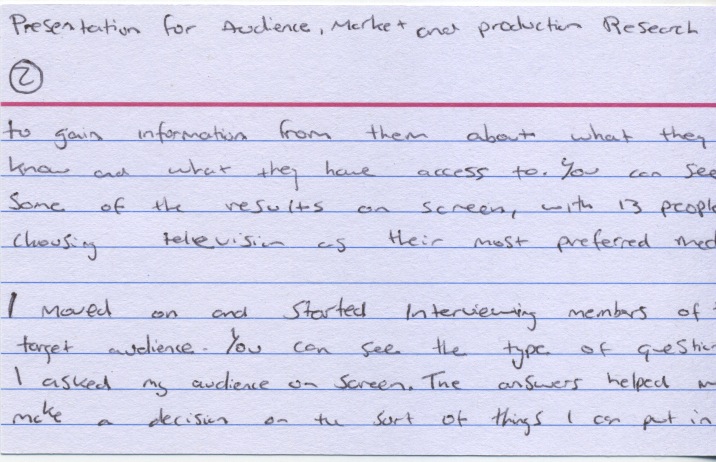 Presentation for Audience, Market and production Research
2
to gain information from them about what they
know and what they have access to. You can see
Some of the results on screen, with 13 people
choosing television as their most preferred med
I moved on and started Interviewing members of
target audience. You can see the type of question
I asked my audience on screen. The answers helped
make a decision on the sort of things I can put in